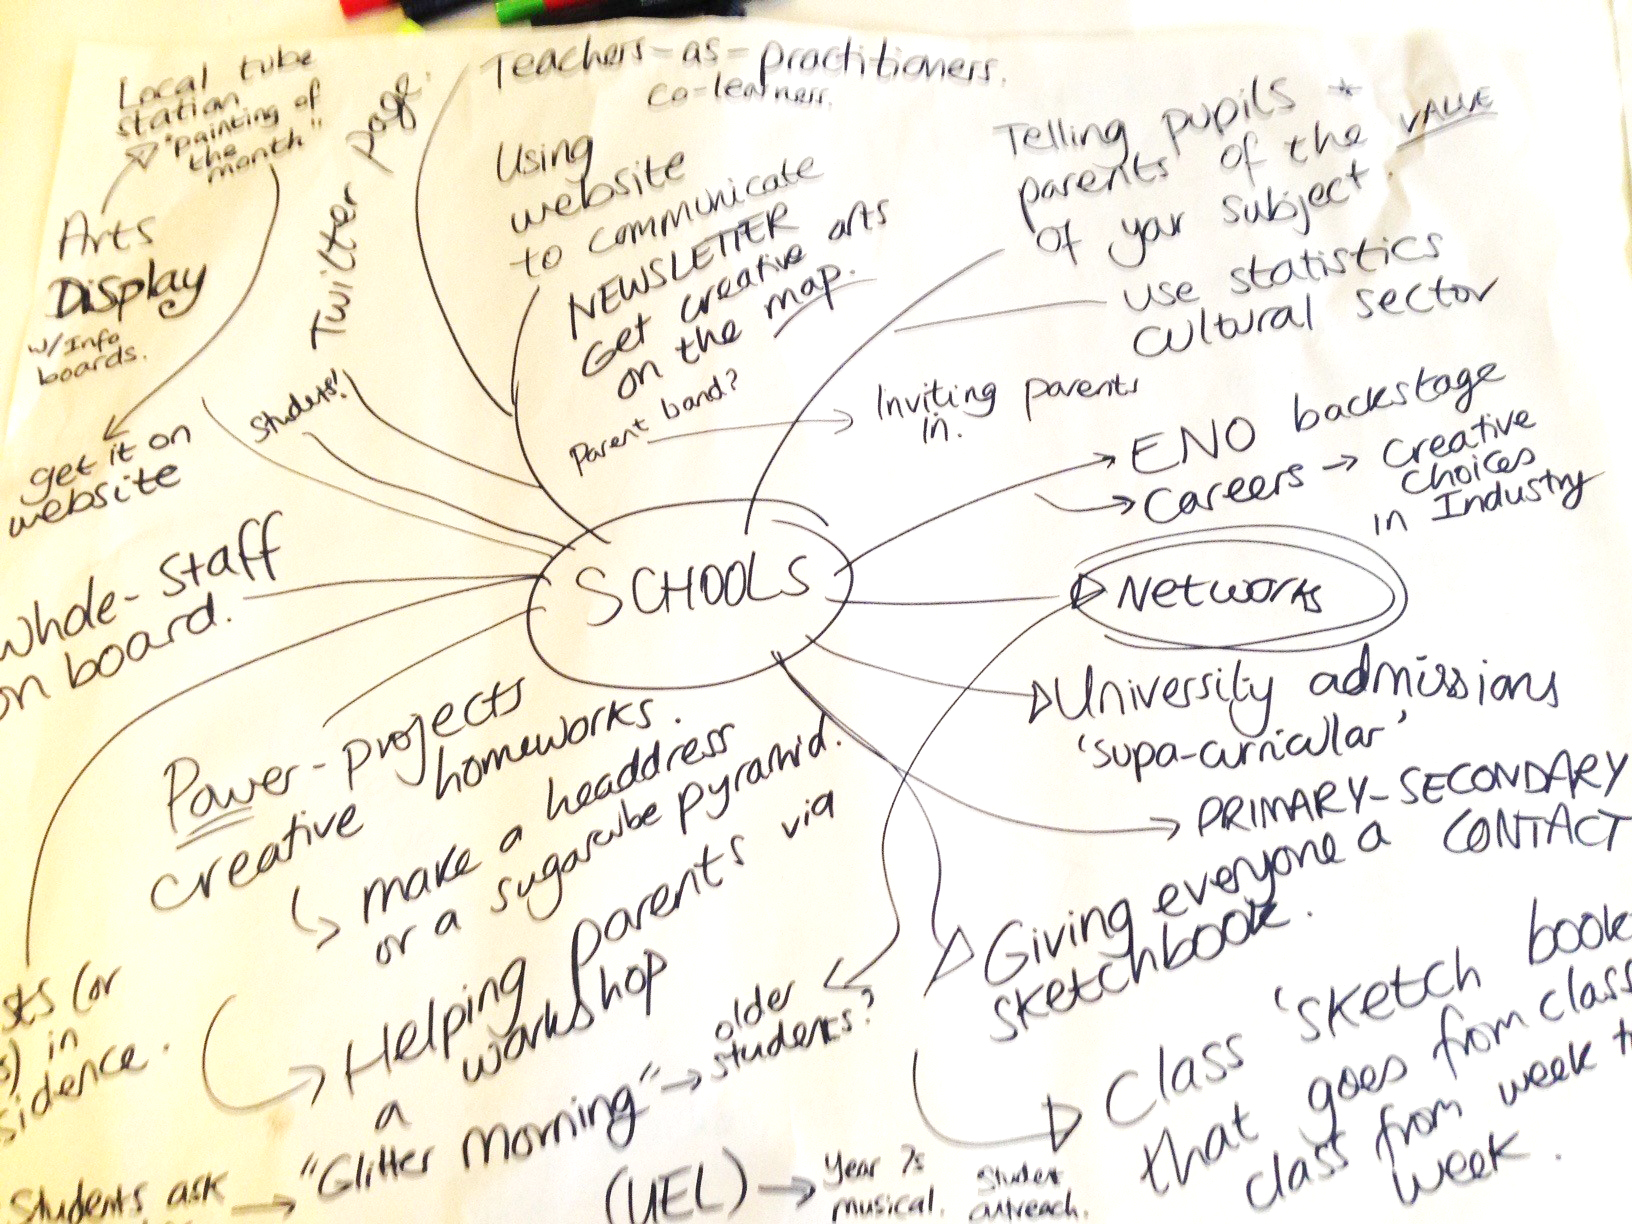 Local tube
station
"painting of
the
month"
Arts
Display
w/Info
boards.
get it on
website
Twitter page.
Students!
Teachers-as-practitioners.
co-learners.
Using
website
to communicate
NEWSLETTER
Get creative arts
on the map.
Parent band?
Inviting parents
in.
Telling pupils +
parents of the VALUE
of your subject.
use statistics
cultural sector
ENO backstage
Careers → Creative
Choices
in Industry
SCHOOLS
Networks
University admissions
'supa-curricular'
PRIMARY-SECONDARY
CONTACT
Giving everyone a
sketchbook.
Class 'sketch book
that goes from class
class from week to
week.
Whole-staff
on board.
Power-projects
creative homeworks.
make a headdress
or a sugarcube pyramid.
Helping parents via
a workshop
a
"Glitter Morning" → older
students?
sts (or
s) in
sidence.
Students ask
(UEL) → Year 7s
musical.
Student
outreach.